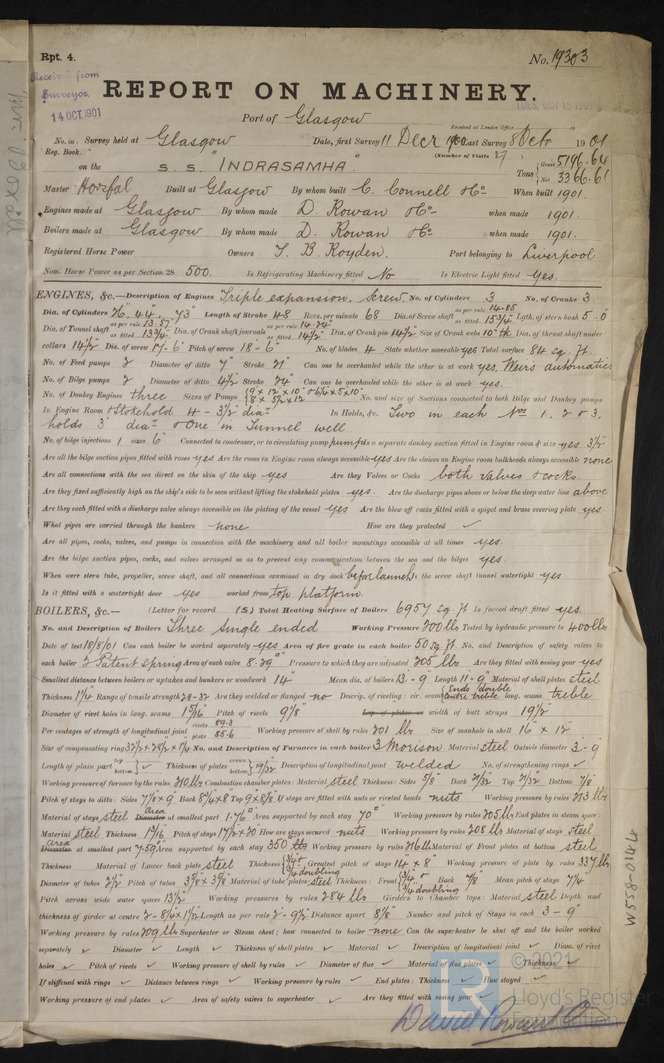 Rpt. 4.
No. 19303
Received from
Surveyor,
14 OCT. 1901
REPORT ON MACHINERY.
TUES. OCT 15 1901
Port of Glasgow
Received at London Office
No. in Survey held at Glasgow Date, first Survey 11 Decr 1900 Last Survey 8 Octr 1901
Reg. Book. (Number of Visits 27)
on the S. S. "INDRASAMHA" Tons Gross 5196.64 Net 3366.61
Master Horsfal Built at Glasgow By whom built C. Connell & Co. When built 1901.
Engines made at Glasgow By whom made D. Rowan & Co. when made 1901.
Boilers made at Glasgow By whom made D. Rowan & Co. when made 1901.
Registered Horse Power Owners T. B. Royden. Port belonging to Liverpool
Nom. Horse Power as per Section 28 500. Is Refrigerating Machinery fitted No Is Electric Light fitted yes.
ENGINES, &c.—Description of Engines Triple expansion. Screw. No. of Cylinders 3 No. of Cranks 3.
Dia. of Cylinders 26. 44. 73" Length of Stroke 48 Revs. per minute 68 Dia. of Screw shaft as per rule 14.85 as fitted 15 3/4" Lgth. of stern bush 5-0
Dia. of Tunnel shaft as per rule 13.57 as fitted 13 3/4" Dia. of Crank shaft journals as per rule 14.24 as fitted 14 1/2" Dia. of Crank pin 14 1/2" Size of Crank webs 10" th Dia. of thrust shaft under
collars 14 1/2" Dia. of screw 17-6" Pitch of screw 18-6" No. of blades 4 State whether moveable yes Total surface 84 sq. ft.
No. of Feed pumps 2 Diameter of ditto 7" Stroke 21" Can one be overhauled while the other is at work yes, Weirs automatic
No. of Bilge pumps 2 Diameter of ditto 4 1/2" Stroke 24" Can one be overhauled while the other is at work yes.
No. of Donkey Engines three Sizes of Pumps No. and size of Suctions connected to both Bilge and Donkey pumps
In Engine Room & Stokehold 4 - 3 1/2" dia In Holds, &c. Two in each Nos 1. 2 & 3.
holds 3" dia & One in Tunnel well
No. of bilge injections 1 sizes 6" Connected to condenser, or to circulating pump pump Is a separate donkey suction fitted in Engine room & size yes 3 1/2"
Are all the bilge suction pipes fitted with roses yes Are the roses in Engine room always accessible yes Are the sluices on Engine room bulkheads always accessible none
Are all connections with the sea direct on the skin of the ship yes Are they Valves or Cocks both valves & cocks.
Are they fixed sufficiently high on the ship's side to be seen without lifting the stokehold plates yes. Are the discharge pipes above or below the deep water line above
Are they each fitted with a discharge valve always accessible on the plating of the vessel yes Are the blow off cocks fitted with a spigot and brass covering plate yes.
What pipes are carried through the bunkers none How are they protected ✓
Are all pipes, cocks, valves, and pumps in connection with the machinery and all boiler mountings accessible at all times yes.
Are the bilge suction pipes, cocks, and valves arranged so as to prevent any communication between the sea and the bilges yes.
When were stern tube, propeller, screw shaft, and all connections examined in dry dock before launch Is the screw shaft tunnel watertight yes
Is it fitted with a watertight door yes worked from top platform.
BOILERS, &c.— (Letter for record (S) ) Total Heating Surface of Boilers 6957 sq. ft Is forced draft fitted yes.
No. and Description of Boilers Three single ended Working Pressure 200 lbs Tested by hydraulic pressure to 400 lbs
Date of test 18/8/01 Can each boiler be worked separately yes Area of fire grate in each boiler 50 sq. ft. No. and Description of safety valves to
each boiler 2 Patent spring Area of each valve 8.29" Pressure to which they are adjusted 205 lbs Are they fitted with easing gear yes
Smallest distance between boilers or uptakes and bunkers or woodwork 14" Mean dia. of boilers 13-9 Length 11-9" Material of shell plates steel
Thickness 1 1/4 Range of tensile strength 28-32 Are they welded or flanged no Descrip. of riveting: cir. seams Ends double centre treble long. seams treble
Diameter of rivet holes in long. seams 1 5/16" Pitch of rivets 9 1/8 Lap of plates or width of butt straps 19 1/2
Per centages of strength of longitudinal joint rivets 89.3 plate 85.6 Working pressure of shell by rules 201 lbs Size of manhole in shell 16" x 12"
Size of compensating ring 32 1/2 x 28 1/2 x 1 1/4 No. and Description of Furnaces in each boiler 3 Morison Material steel Outside diameter 3-9"
Length of plain part top bottom ✓ Thickness of plates crown bottom 19/32 Description of longitudinal joint welded No. of strengthening rings ✓
Working pressure of furnace by the rules 210 lbs Combustion chamber plates: Material steel Thickness: Sides 5/8" Back 21/32 Top 21/32 Bottom 7/8"
Pitch of stays to ditto: Sides 7 7/8 x 9 Back 8 1/4 x 8 Top 9 x 8 7/8 If stays are fitted with nuts or riveted heads nuts Working pressure by rules 213 lbs
Material of stays steel Diameter Area at smallest part 1.76" Area supported by each stay 70" Working pressure by rules 205 lbs End plates in steam space:
Material steel Thickness 1 3/16 Pitch of stays 17 1/2 x 20 How are stays secured nuts Working pressure by rules 208 lbs Material of stays steel
Diameter Area at smallest part 7.59" Area supported by each stay 350" Working pressure by rules 216 lbs Material of Front plates at bottom steel
Thickness 3/4 & 3/4 doubling Material of Lower back plate steel Thickness Greatest pitch of stays 14 x 8" Working pressure of plate by rules 337 lbs
Diameter of tubes 2 1/2 Pitch of tubes 3 7/8 x 3 7/8 Material of tube plates steel Thickness: Front 3/4 & 3/4 doubling Back 7/8 Mean pitch of stays 7 3/4"
Pitch across wide water spaces 13 1/2 Working pressures by rules 284 lbs Girders to Chamber tops: Material steel Depth and
thickness of girder at centre Length as per rule 2-9 1/2 Distance apart 8 7/8 Number and pitch of Stays in each 3 - 9"
Working pressure by rules 209 lbs Superheater or Steam chest; how connected to boiler none Can the superheater be shut off and the boiler worked
separately ✓ Diameter ✓ Length ✓ Thickness of shell plates ✓ Material ✓ Description of longitudinal joint ✓ Diam. of rivet
holes ✓ Pitch of rivets ✓ Working pressure of shell by rules ✓ Diameter of flue ✓ Material of flue plates ✓ Thickness ✓
If stiffened with rings ✓ Distance between rings ✓ Working pressure by rules ✓ End plates: Thickness ✓ How stayed ✓
Working pressure of end plates ✓ Area of safety valves to superheater ✓ Are they fitted with easing gear ✓
David Rowan & Co
W558-0141
© 2021
Lloyd's Register
Foundation